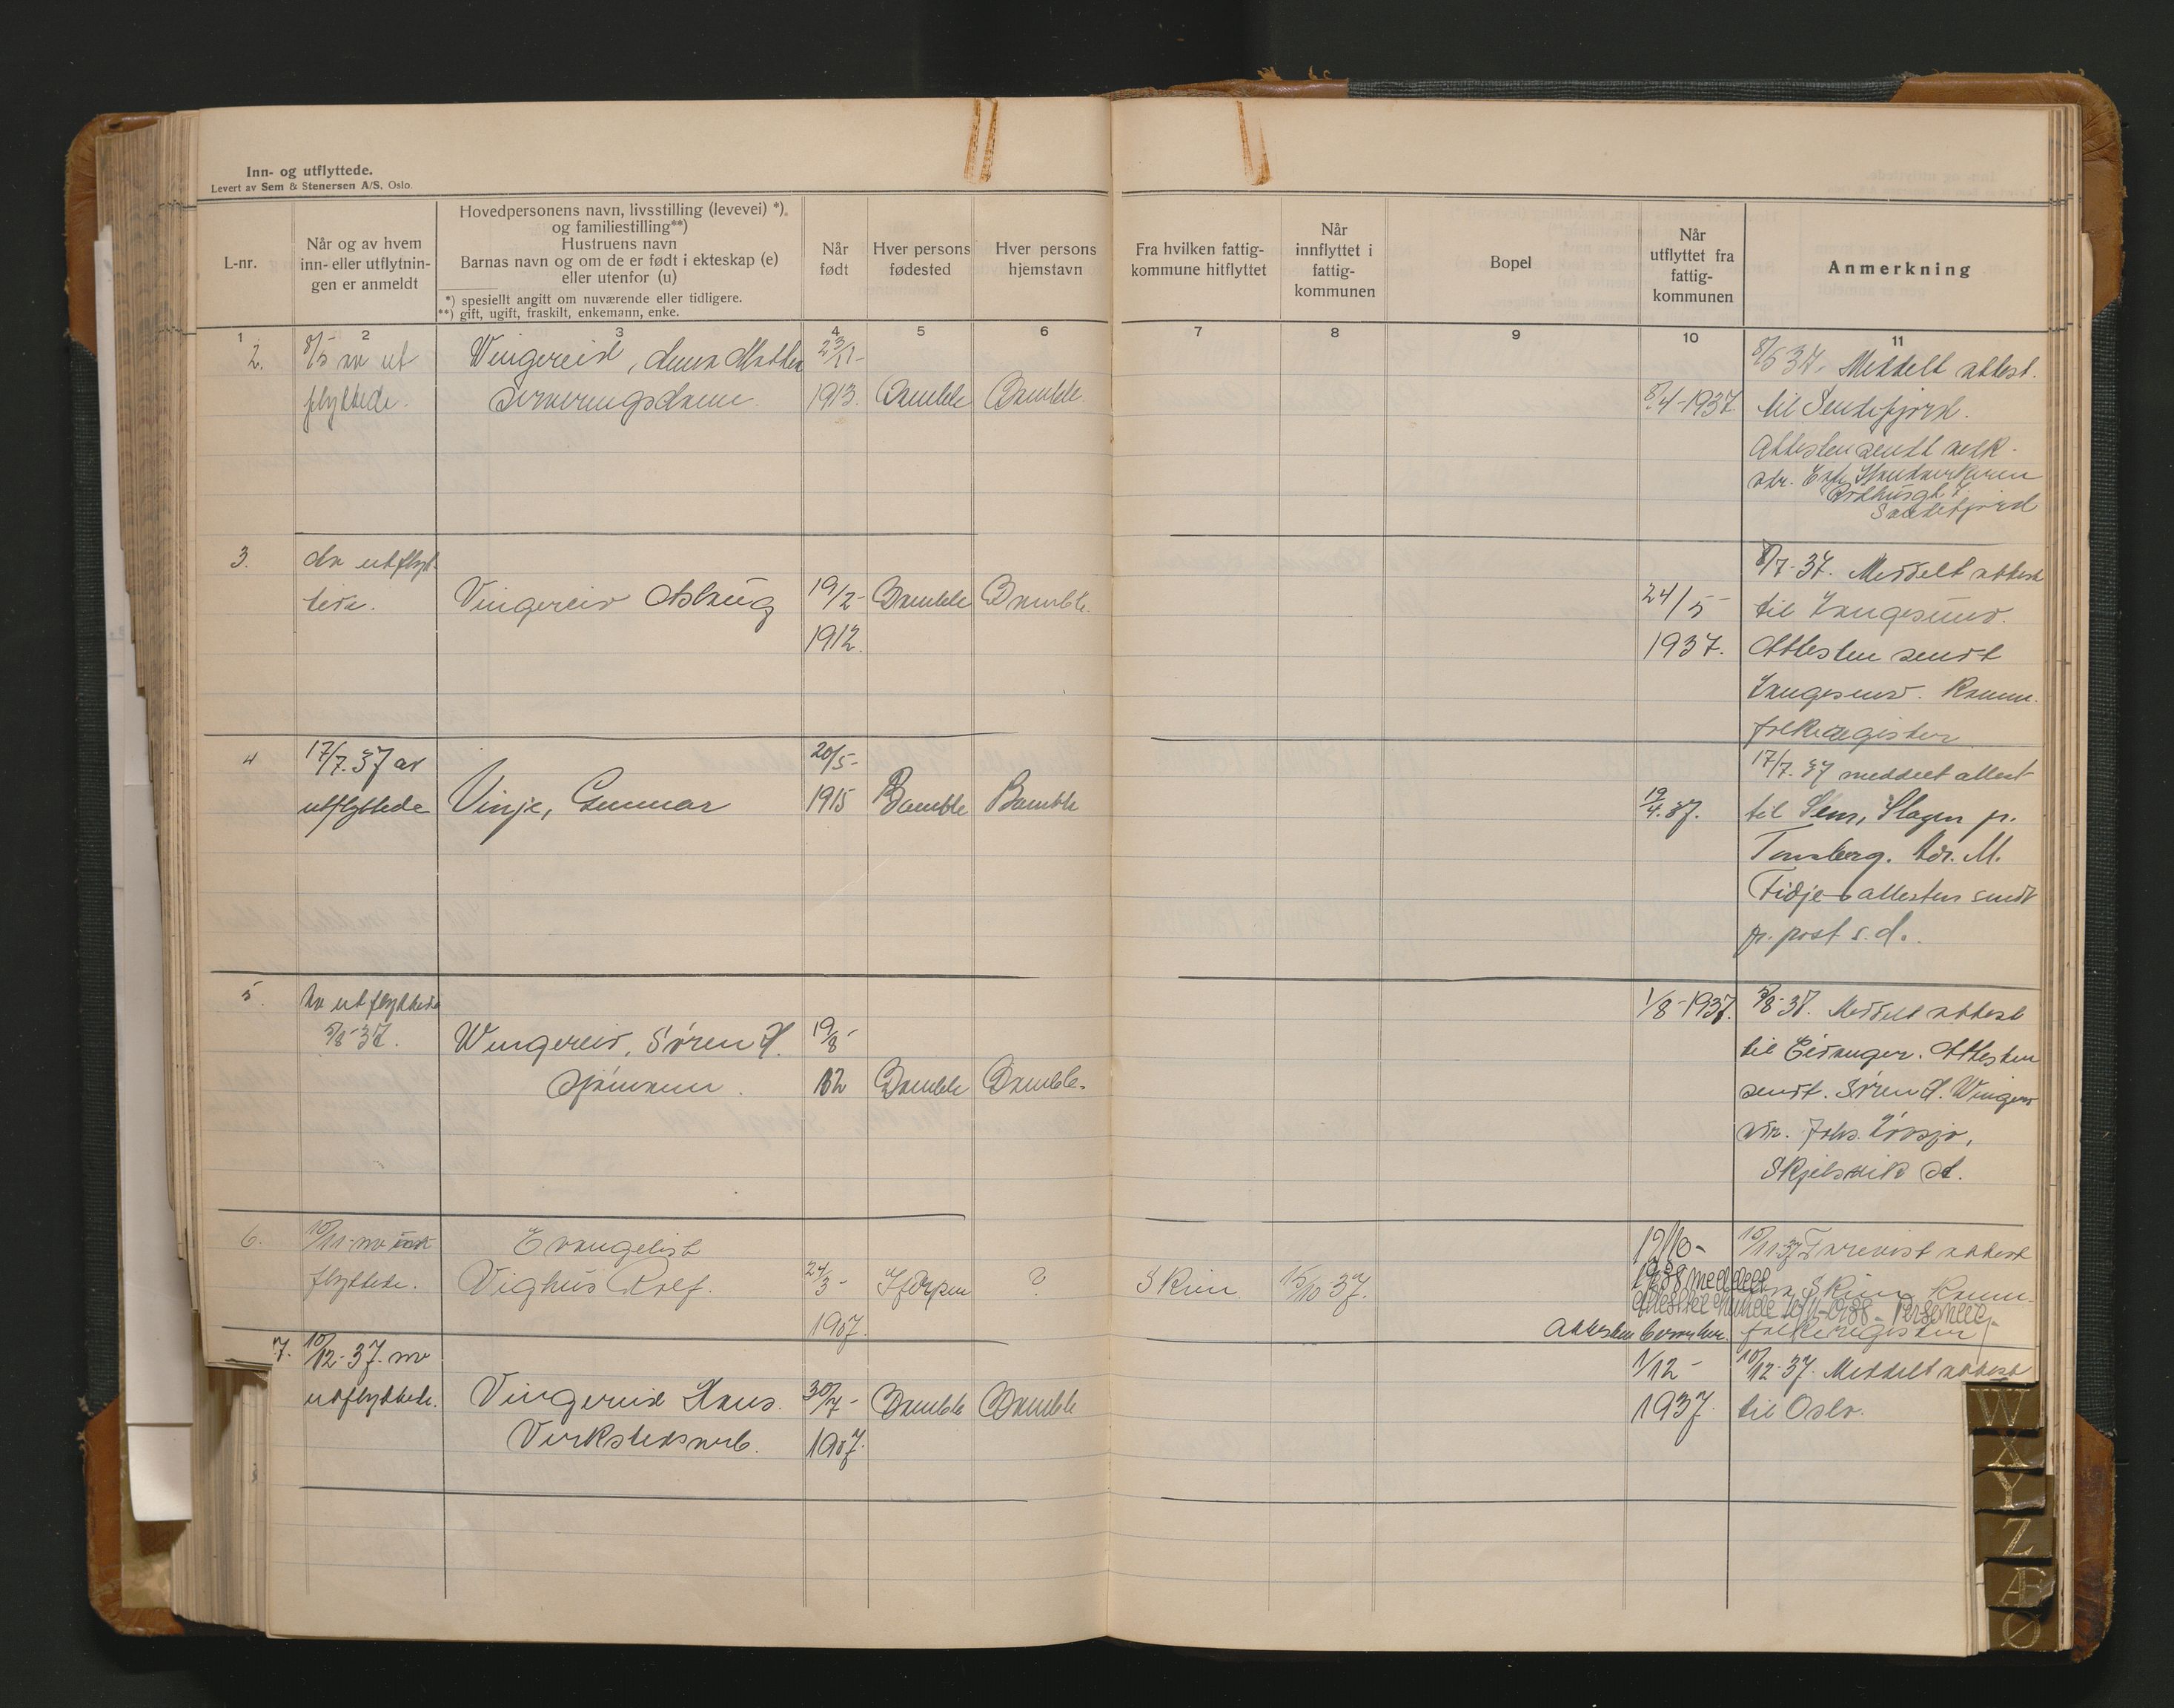 Inn- og utflyttede.
Levert av Sem & Stenersen A/S, Oslo.
L-nr.
Når og av hvem
inn- eller utflytnin-
gen er anmeldt
Hovedpersonens navn, livsstilling (levevei) *),
og familiestilling**)
Hustruens navn
Barnas navn og om de er født i ekteskap (e)
eller utenfor (u)
*) spesiellt angitt om nuværende eller tidligere.
**) gift, ugift, fraskilt, enkemann, enke.
Når
født
Hver persons
fødested
Hver persons
hjemstavn
Fra hvilken fattig-
kommune hitflyttet
Når
innflyttet i
fattig-
kommunen
Bopel
Når
utflyttet fra
fattig-
kommunen
Anmerkning
1 2 3 4 5 6 7 8 9 10 11
2.
8/5 av ut
flyttede.
Wingereid, Anna Mathea
Serveringsdame.
23/11-
1913.
Bamble
Bamble
8/4-1937.
8/5 37. Meddelt attest.
til Sandefjord.
Attesten sendt vedk.
adr.
Rådhusgt. 7.
Sandefjord
3.
av utflyt-
tede.
Vingereid Aslaug
19/2-
1912.
Bamble
Bamble.
24/5
1937.
8/7-37. Meddelt attest
til Langesund.
Attesten sendt
Langesund. Komm.
folkeregister
4
17/7.37 av
utflyttede
Vinje, Gunnar
20/5-
1915
Bamble
Bamble
19/4.37.
17/7.37 meddelt attest
til Sem, Slagen pr.
Tønsberg. Adr. M.
Tidje attesten sendt
pr. post s.d.
5.
Av utflyttede
5/8-37.
Wingereid, Søren H.
Sjømann.
19/8-
12
Bamble
Bamble.
1/8-1937.
5/8-37. Meddelt attest
til Eidanger. Attesten
sendt. Søren H. Winger
adr. Johs.
Skjelsvik st.
6.
10/11-av inn
flyttede.
Evangelist
Vighus Rolf.
24/3-
1907.
Gjerpen
?
Skien
15/10-37.
12/10-
1938 meddelt
10/11-37 Forevist attest
fra Skien Komm.
folkeregister
Attesten
7.
10/12-37. av
utflyttede.
Vingereid Hans.
Verkstedsarb.
30/7-
1907.
Bamble
Bamble
1/12-
1937.
10/12-37. Meddelt attest
til Oslo.
W
X
Y
Z
Æ
Ø